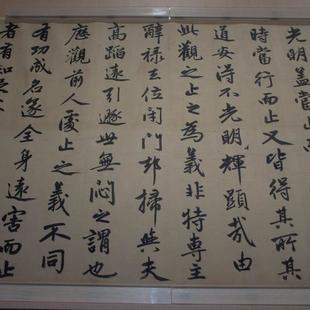 光明盖當止而
時當行而止又皆得其所其
道安得不光明輝顯哉由
此觀之止之為義非特專主
辭禄去位閉門却掃與夫
高蹈遠引遯世無悶之謂也
應觀前人處止之義不同
有功成名遂全身遠害而止
者有知